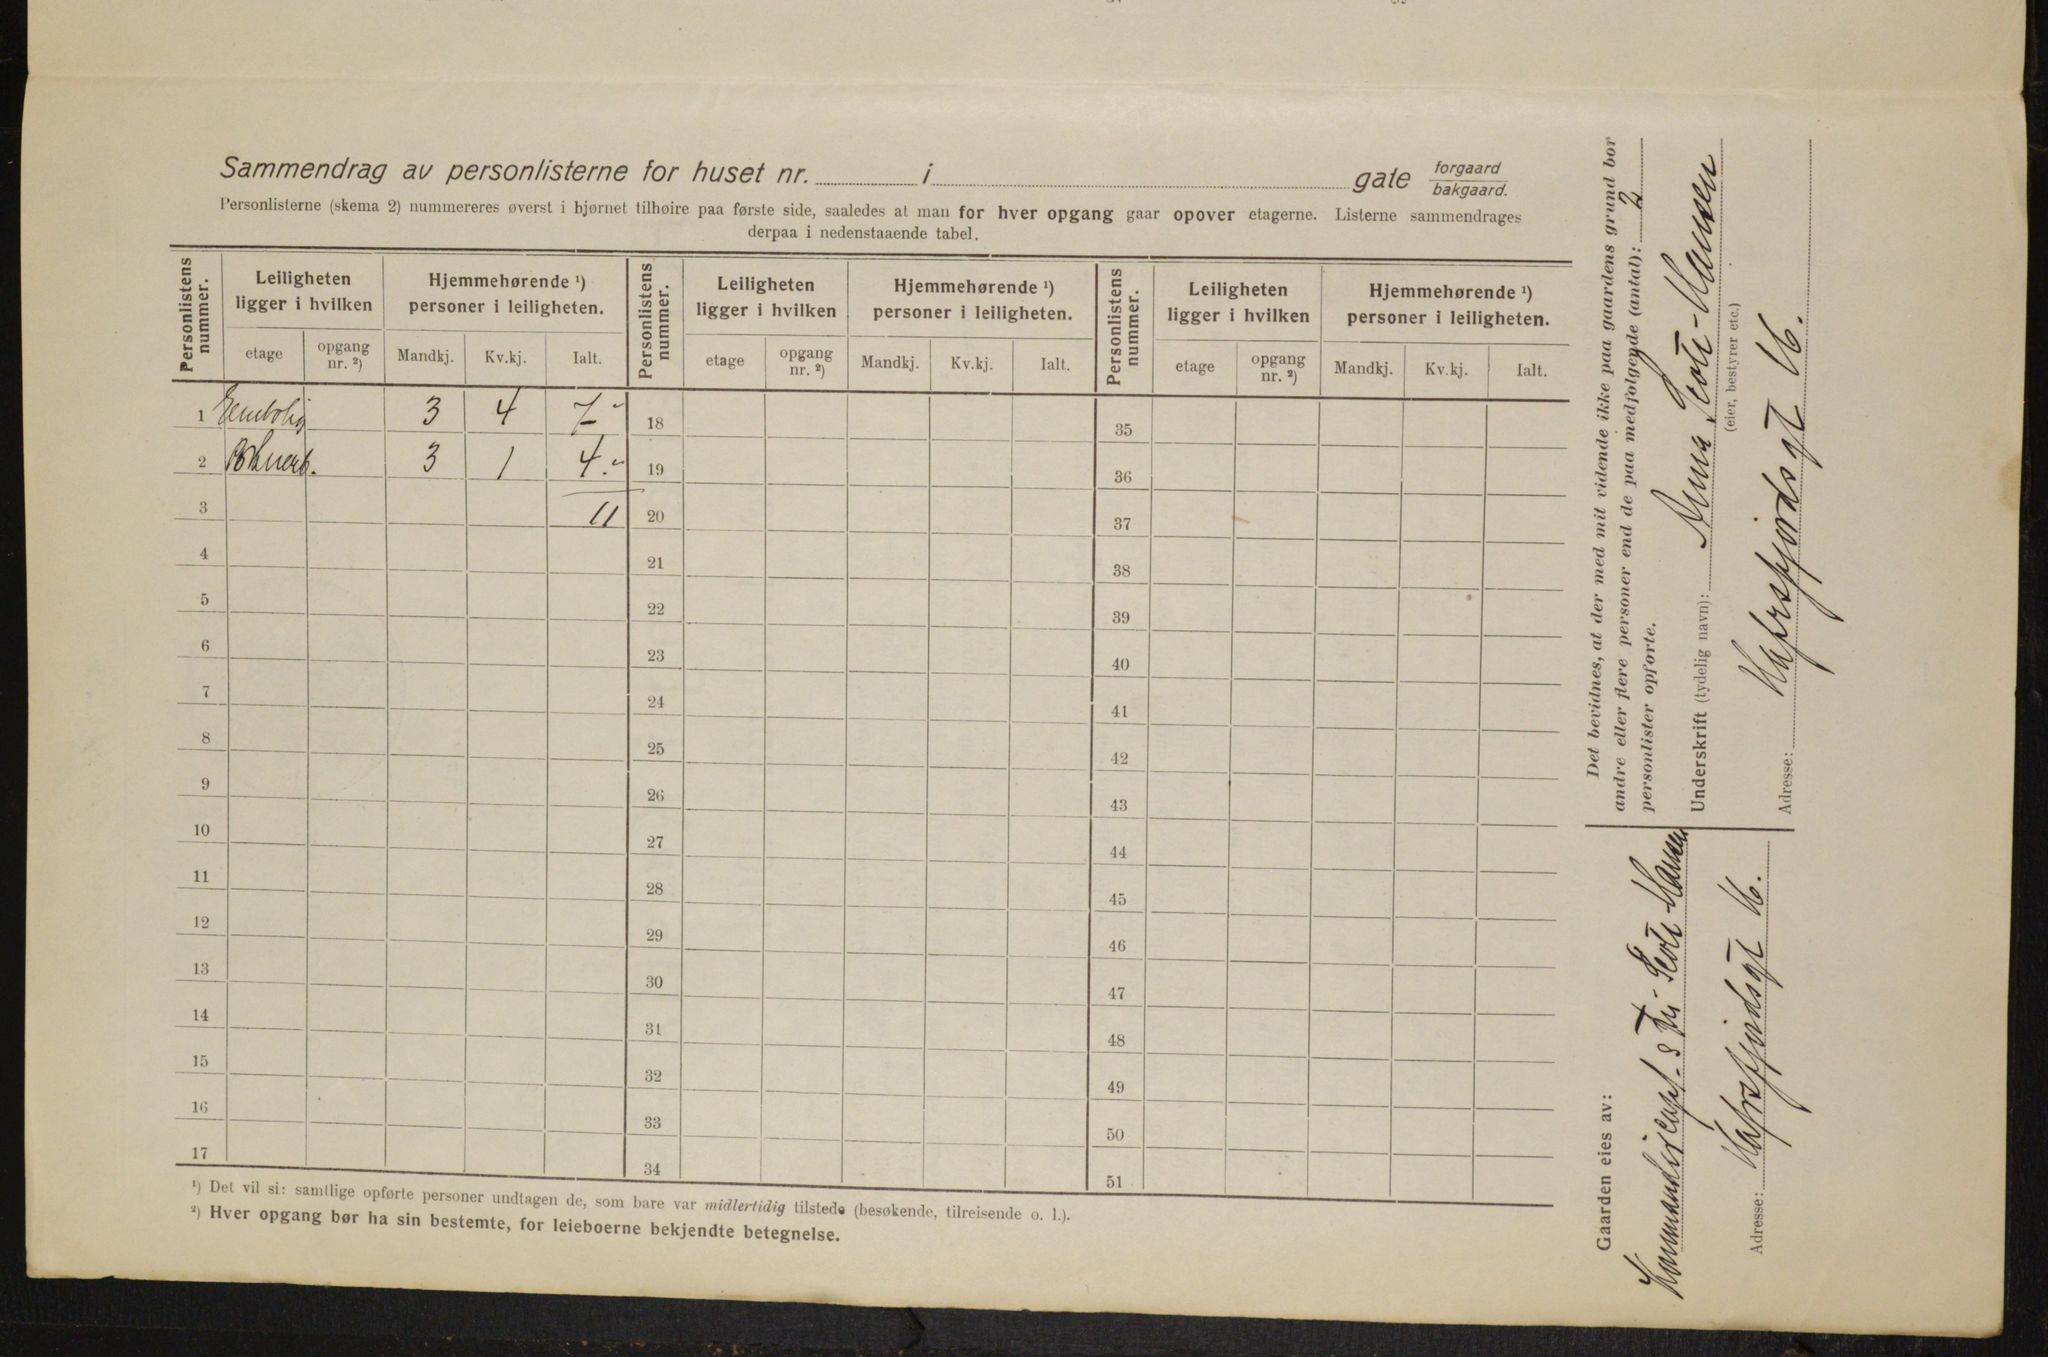 Sammendrag av personlisterne for huset nr. i gate forgaard
bakgaard.
Personlisterne (skema 2) nummereres øverst i hjørnet tilhøire paa første side, saaledes at man for hver opgang gaar opover etagerne. Listerne sammendrages
derpaa i nedenstaaende tabel.
Personlistens nummer. Leiligheten ligger i hvilken Hjemmehørende ¹) personer i leiligheten. Personlistens nummer. Leiligheten ligger i hvilken Hjemmehørende ¹) personer i leiligheten. Personlistens nummer. Leiligheten ligger i hvilken Hjemmehørende ¹) personer i leiligheten.
etage opgang nr. ²) Mandkj. Kv.kj. Ialt. etage opgang nr. ²) Mandkj. Kv.kj. Ialt. etage opgang nr. ²) Mandkj. Kv.kj. Ialt.
1 3 4 7 18 35
2 3 1 4. 19 36
3 11 20 37
4 21 38
5 22 39
6 23 40
7 24 41
8 25 42
9 26 43
10 27 44
11 28 45
12 29 46
13 30 47
14 31 48
15 32 49
16 33 50
17 34 51
¹) Det vil si: samtlige opførte personer undtagen de, som bare var midlertidig tilstede (besøkende, tilreisende o. l.).
²) Hver opgang bør ha sin bestemte, for leieboerne bekjendte betegnelse.
Det bevidnes, at der med mit vidende ikke paa gaardens grund bor
andre eller flere personer end de paa medfølgende (antal): 2
personlister opførte.
Underskrift (tydelig navn): Anna Scott-Hansen
(eier, bestyrer etc.)
Adresse: Hafrsfjordsgt 16.
Gaarden eies av:
Scott Hansen
Adresse: Hafrsfjordsgt 16.